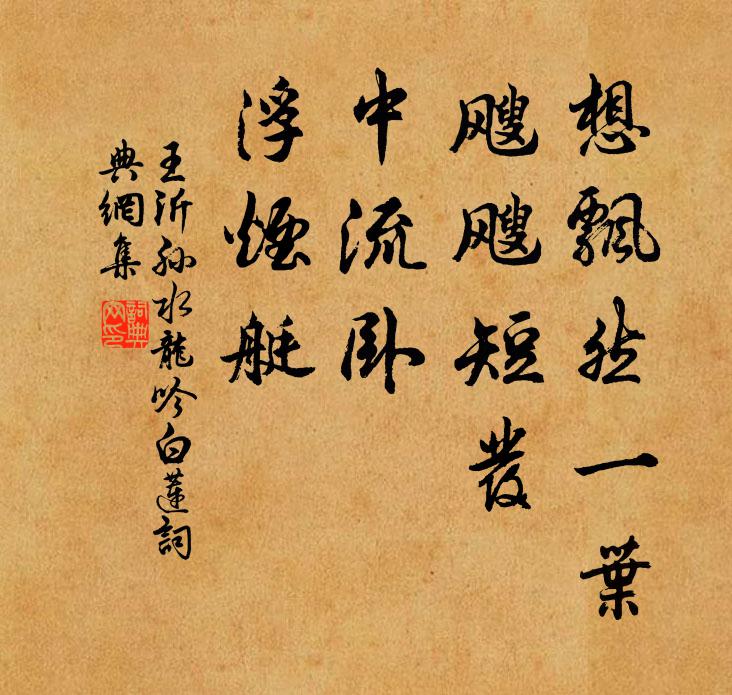 想飄然一葉
颼颼短發
中流卧
浮煙艇
王沂孫水龍吟白蓮詞
典網集
詞典